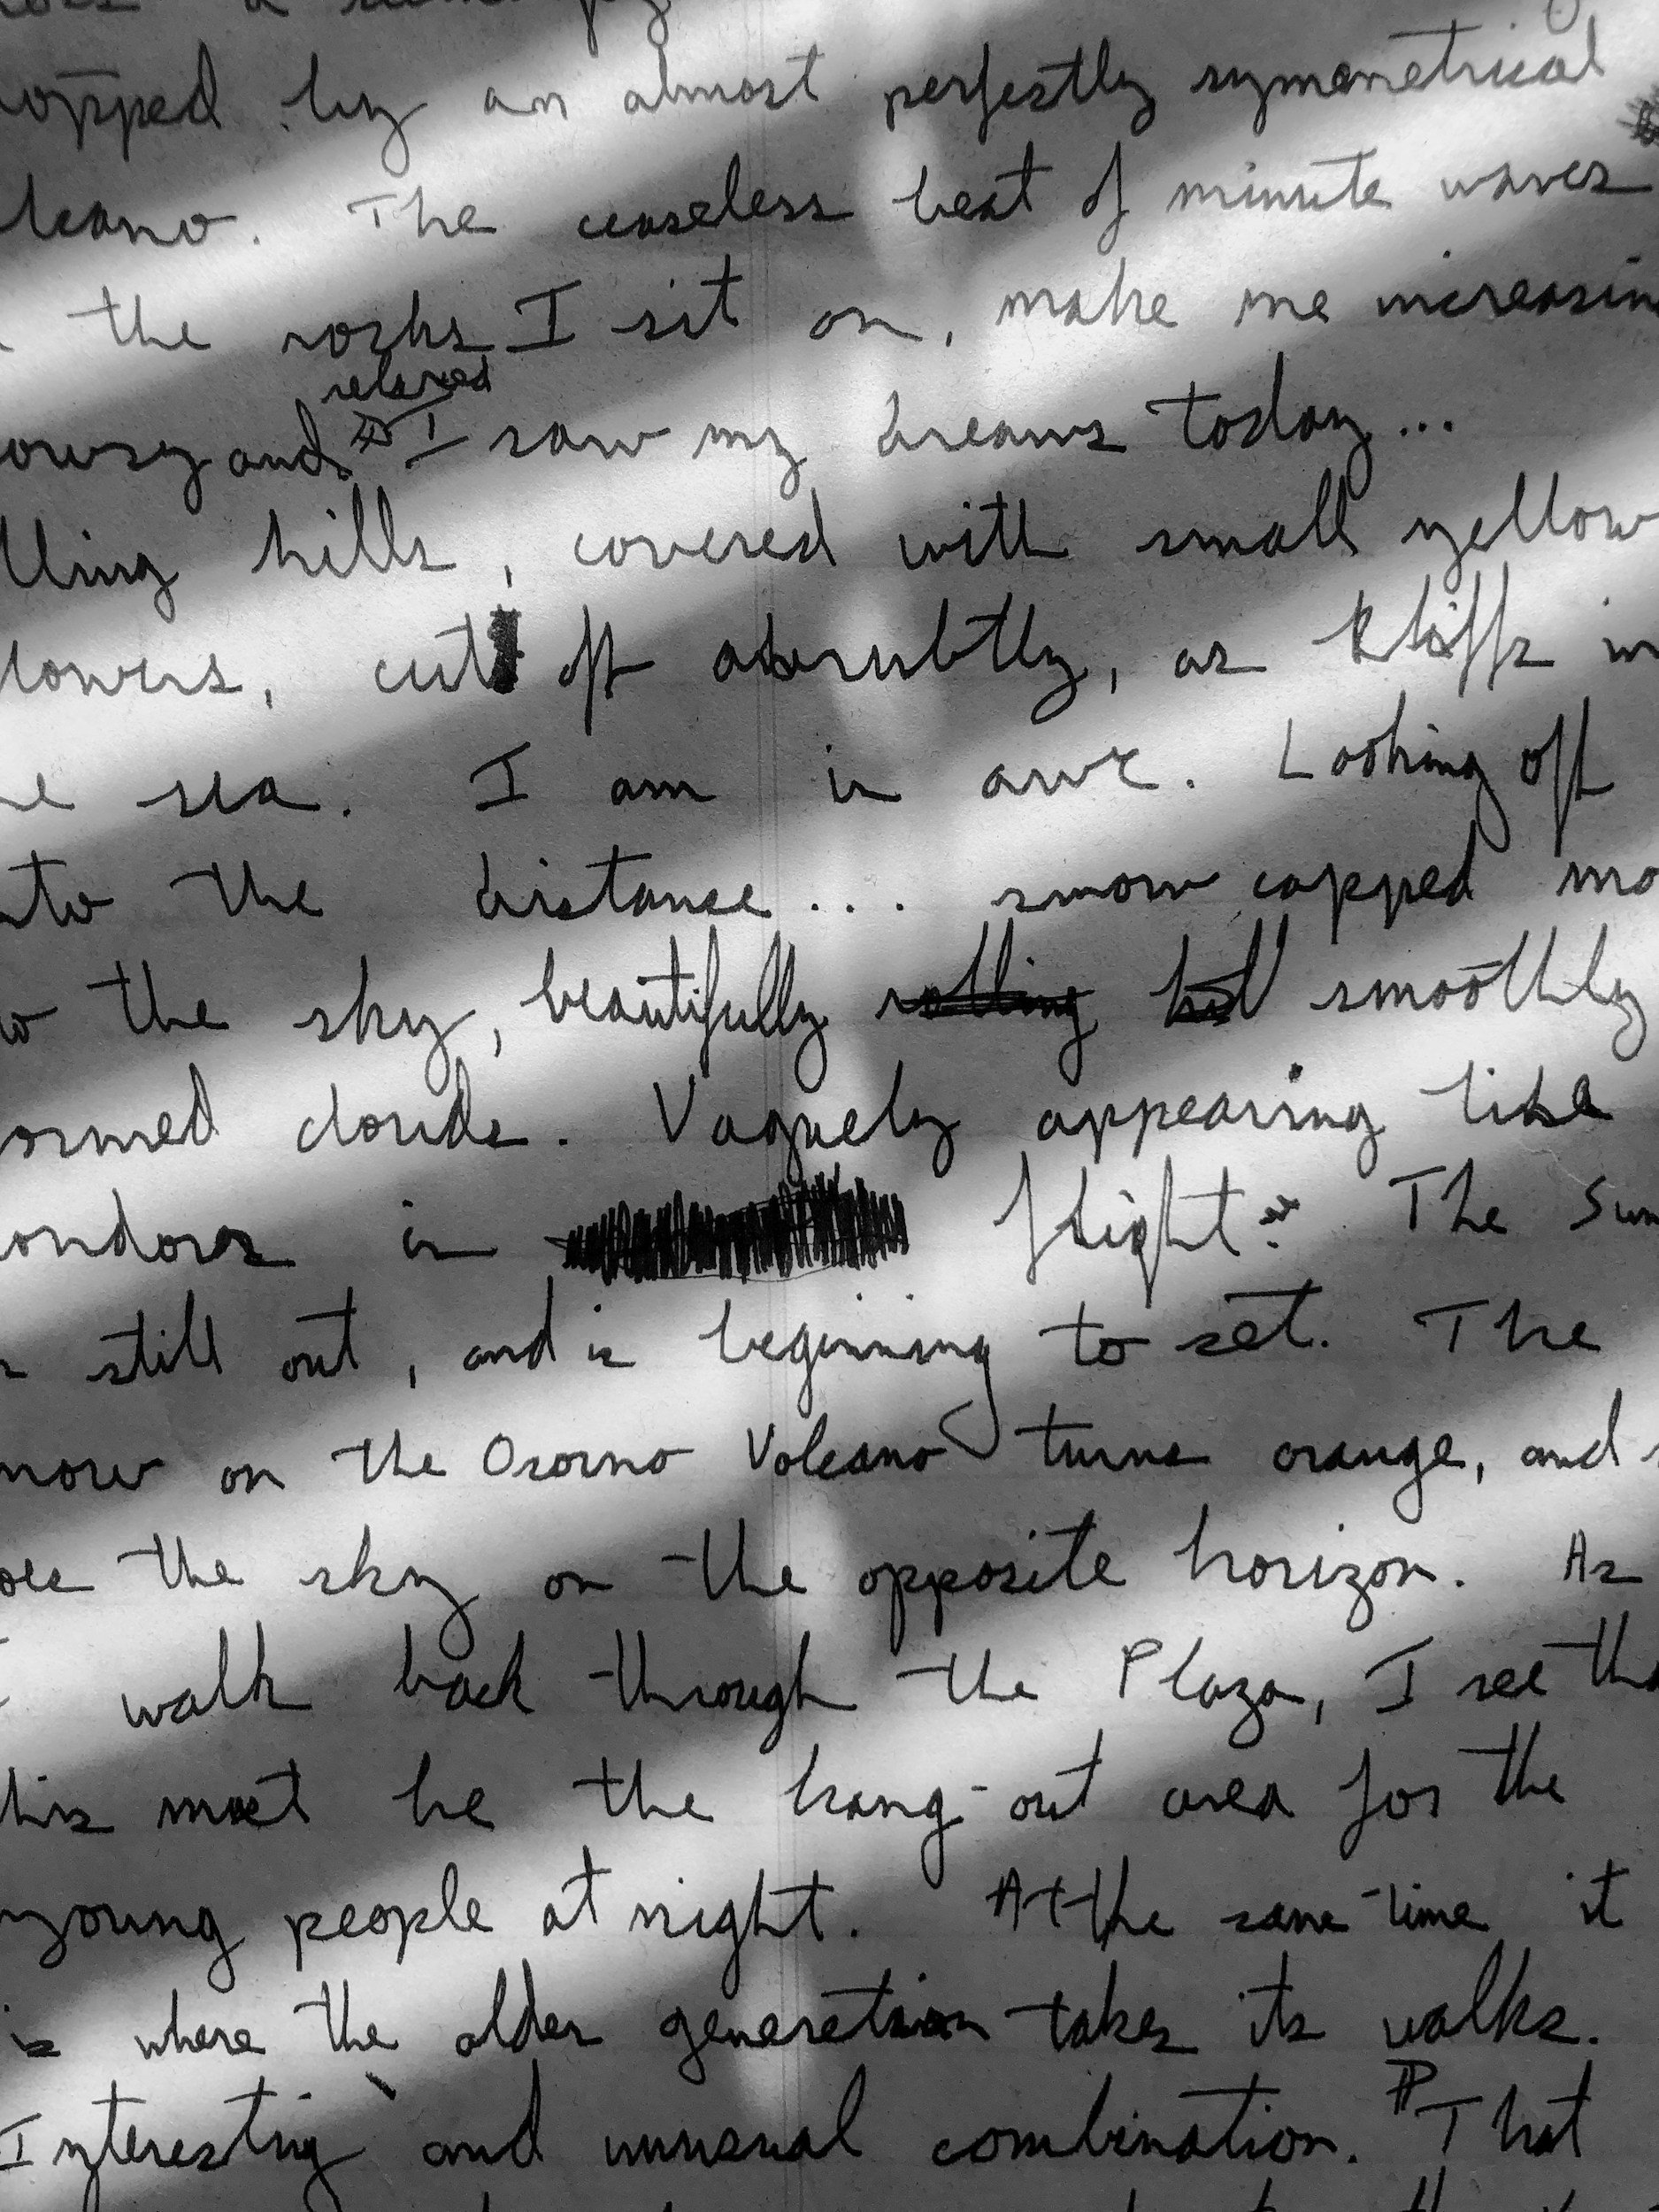 opped by an almost perfectly symmetrical
lcano. The ceaseless beat of minute waves
the rocks I sit on, make me increasin
relaxed
owsy and I saw my dreams today...
lling hills, covered with small yellow
lowers, cut off abrubtly, as kliffs in
he sea. I am in awe. Looking off
nto the distance... snow capped mo
o the sky, beautifully rolling hill smoothly
ormed clouds. Vaguely appearing like
ondores in flight. The Sun
s still out, and is beginning to set. The
now on the Osorno Volcano turns orange, and
oes the sky on the opposite horizon. As
I walk back through the Plaza, I see tha
his must be the hang-out area for the
young people at night. At the same time it
is where the older generation takes its walks.
Interesting and unusual combination. That